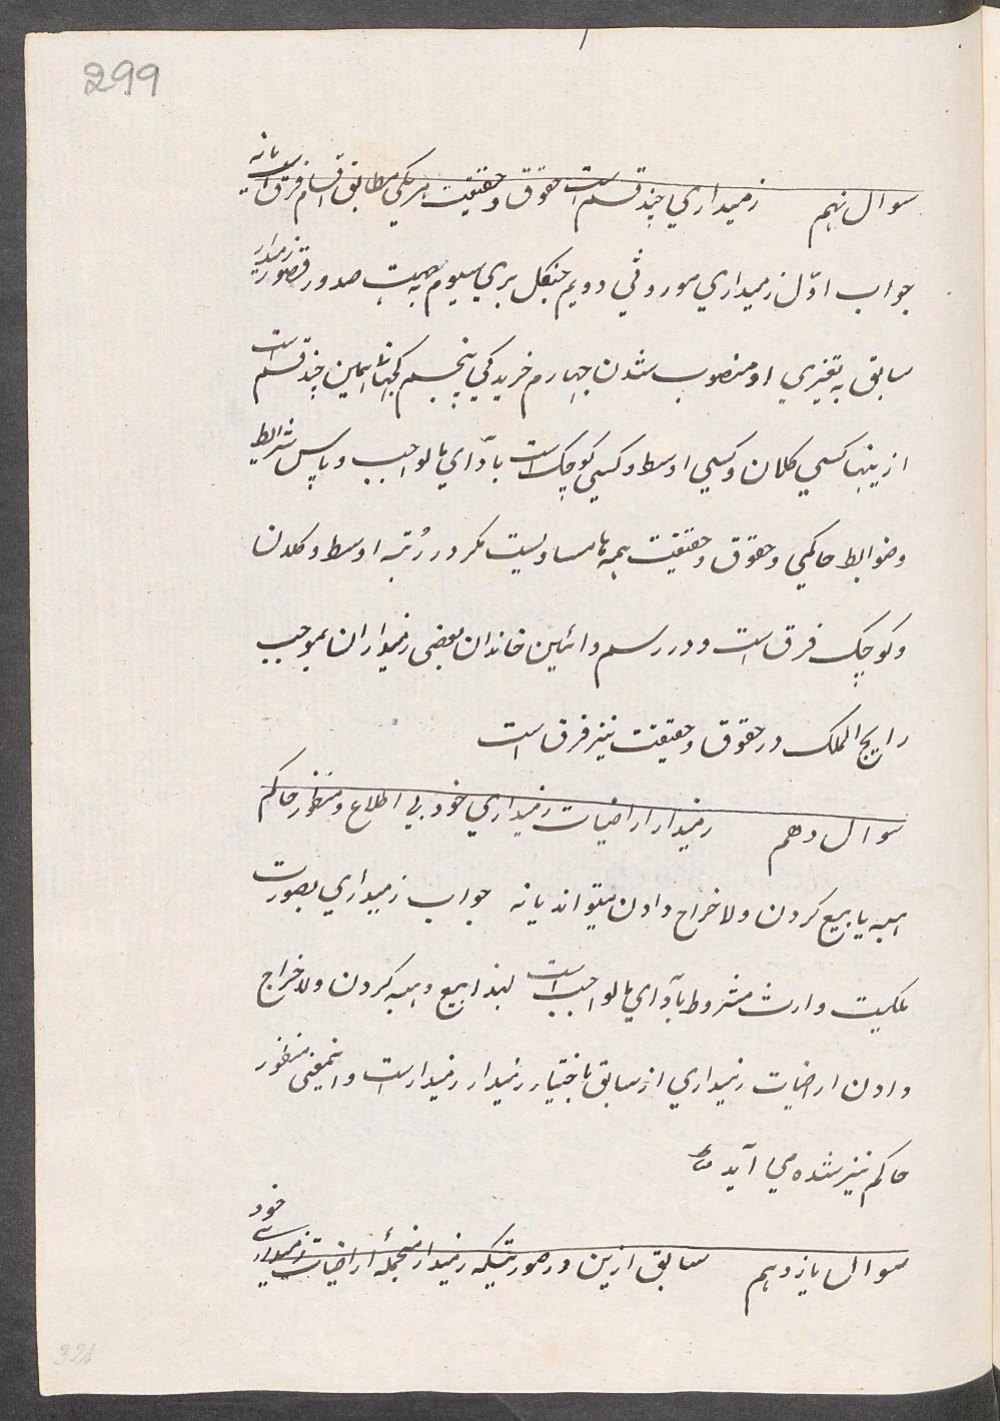 299
سوال نهم زمیداری چند قسم است حقوق و حقیقت هر یکی مطابق اقسام فرق است یا نه
جواب اوّل زمیداری موروثی دویم جنگل بری سیوم به جهت صدور قصور زمیدار
سابق به تغیری او منصوب شدن چهارم خریدگی پنجم چند قسم است
ازینها کسی کلان و کسی اوسط و کسی کوچک است بادّای مالواجب و پاس شرایط
و ضوابط حاکمی و حقوق و حقیقت همه ها مساویست مکر در رُتبه اوسط و کلان
و کوچک فرق است و در رسم و ائین خاندان بعضی زمیداران بموجب
رایج الملک در حقوق و حقیقت نیز فرق است
سوال دهم زمیدار اراضیات زمیداری خود بی اطلاع و منظور حاکم
هبه یا بیع کردن و لاخراج دادن میتواند یا نه جواب زمیداری بصورت
ملکیت وارث مشروط بادّای مالواجب است لهذا بیع و هبه کردن و لاخراج
دادن اراضیات زمیداری از سابق باختیار زمیدار زمیدارست و اینمعنی منظور
حاکم نیز شده می آید
سوال یازدهم سابق ازین در صورتیکه زمیدار منجملهٔ اراضیات زمیداری خود
326